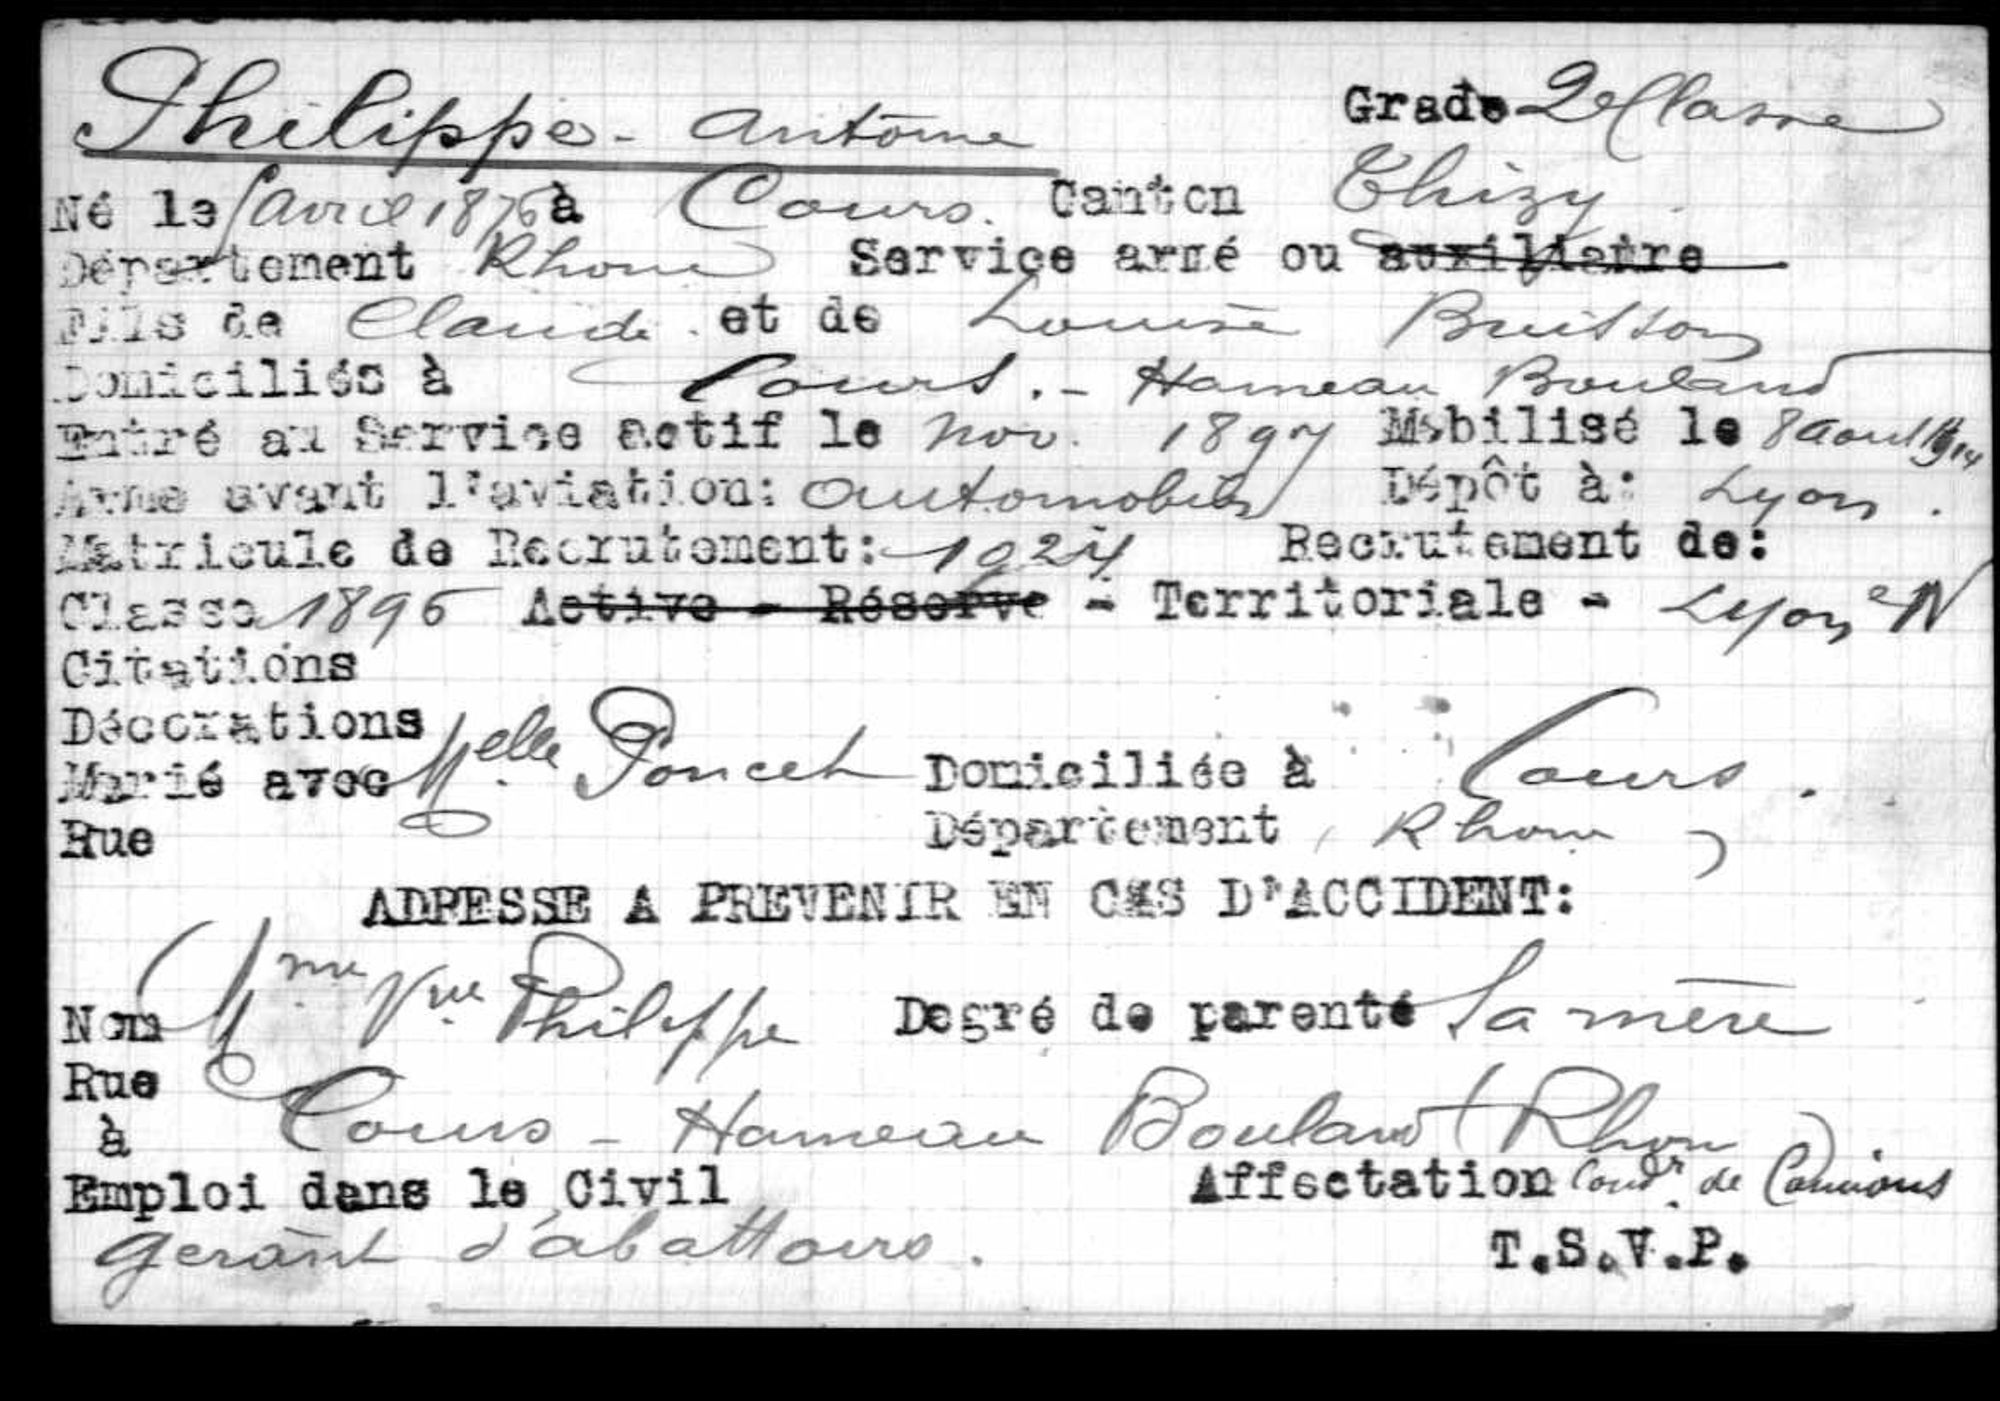 Philippe - Antoine Grade 2e Classe
Né le avril 1876 à Cours. Canton Thizy
Département Rhone Service armé ou auxiliaire
Fils de Claude et de Louise Buisson
Domiciliés à Cours. - Hameau Bouland
Entré au Service actif le Nov. 1897 Mobilisé le 8 aout 1914
Arme avant l'aviation: automobiles Dépôt à: Lyon.
Matricule de Recrutement: 1024 Recrutement de:
Classe 1896 Active - Réserve - Territoriale - Lyon N
Citations
Décorations
Marié avec Melle Poncet Domiciliée à Cours.
Rue Département Rhone
ADRESSE A PREVENIR EN CAS D'ACCIDENT:
Nom Mme Vve Philippe Degré de parenté Sa mère
Rue
à Cours - Hameau Bouland Rhone
Emploi dans le Civil Affectation Condr. de Camions
gerant d'abattoirs. T.S.V.P.